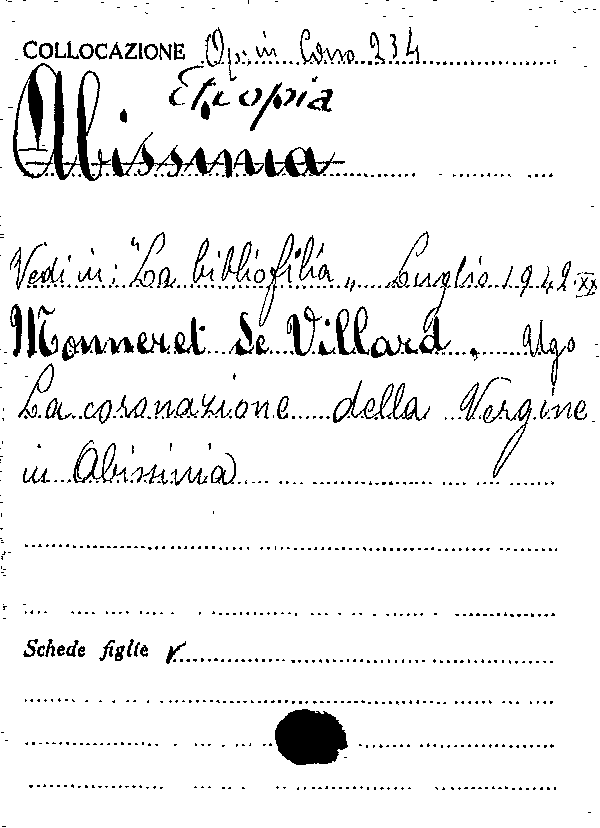 COLLOCAZIONE Op. in Cons 234
Etiopia
Abissinia
Vedi in: "La bibliofilia" Luglio 1942-XX
Monneret de Villard. Ugo
La coronazione della Vergine
in Abissinia
Schede figlie